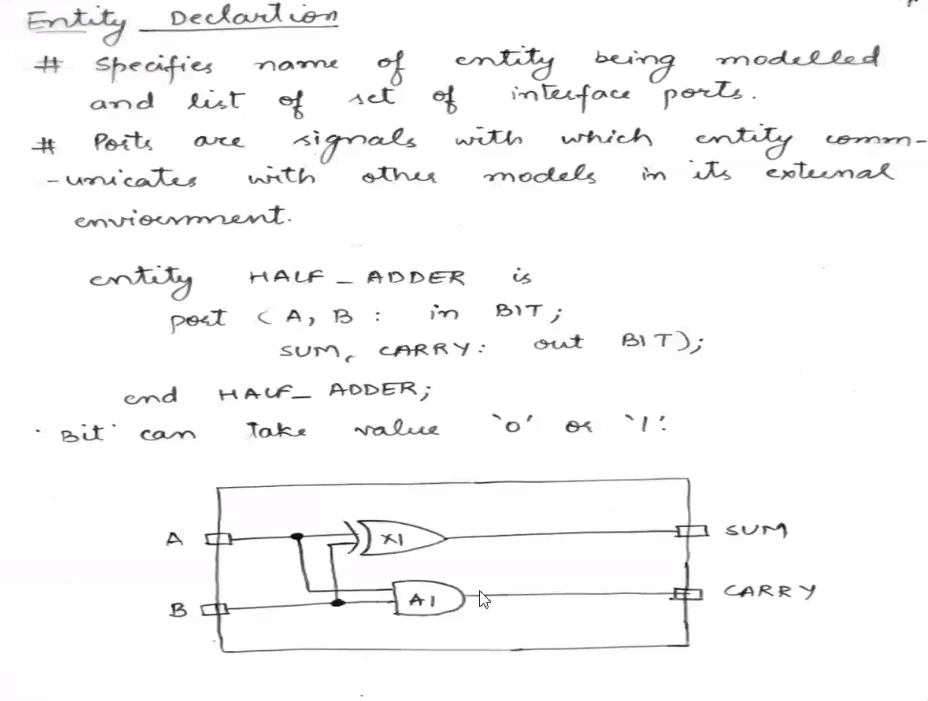 Entity Declartion
# Specifies name of entity being modelled
and list of set of interface ports.
# Ports are signals with which entity comm-
-unicates with other models in its external
enviornment.
entity HALF_ADDER is
port (A, B : in BIT;
SUM, CARRY: out BIT);
end HALF_ADDER;
'Bit' can Take value '0' or '1'.
A X1 SUM
B A1 CARRY